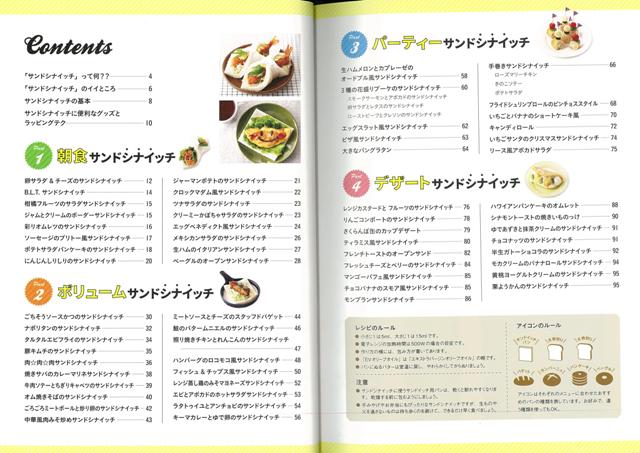 Contents
「サンドシナイッチ」って何?? 4
「サンドシナイッチ」のイイところ 6
サンドシナイッチの基本 8
サンドシナイッチに便利なグッズと
ラッピングテク 10
Part 1 朝食サンドシナイッチ
卵サラダ & チーズのサンドシナイッチ 12
B.L.T. サンドシナイッチ 14
柑橘フルーツのサラダサンドシナイッチ 15
ジャムとクリームのボーダーサンドシナイッチ 15
彩りオムレツのサンドシナイッチ 16
ソーセージのブリトー風サンドシナイッチ 17
ポテトサラダパンケーキのサンドシナイッチ 18
にんじんしりしりのサンドシナイッチ 20
ジャーマンポテトのサンドシナイッチ 21
クロックマダム風サンドシナイッチ 22
ツナサラダのサンドシナイッチ 23
クリーミーかぼちゃサラダのサンドシナイッチ 23
エッグベネディクト風サンドシナイッチ 24
メキシカンサラダのサンドシナイッチ 26
生ハムのイタリアンサンドシナイッチ 27
ベーグルのオープンサンドシナイッチ 28
Part 2 ボリュームサンドシナイッチ
ごちそうソースかつのサンドシナイッチ 30
ナポリタンのサンドシナイッチ 32
タルタルエビフライのサンドシナイッチ 34
豚キムチのサンドシナイッチ 35
肉☆肉☆肉サンドシナイッチ 36
焼きサバのカレーマリネサンドシナイッチ 38
牛肉ソテーとちぎりキャベツのサンドシナイッチ 39
オム焼きそばのサンドシナイッチ 40
ごろごろミートボールと炒り卵のサンドシナイッチ 42
中華風肉みそ炒めサンドシナイッチ 43
ミートソースとチーズのスタッフドバゲット 44
鮭のバタームニエルのサンドシナイッチ 46
照り焼きチキンとれんこんのサンドシナイッチ 47
ハンバーグのロコモコ風サンドシナイッチ 48
フィッシュ & チップス風サンドシナイッチ 50
レンジ蒸し鶏のみそマヨネーズサンドシナイッチ 52
エビとアボカドのホットサラダサンドシナイッチ 53
ラタトゥイユとアンチョビのサンドシナイッチ 54
キーマカレーとゆで卵のサンドシナイッチ 56
Part 3 パーティーサンドシナイッチ
生ハムメロンとカプレーゼの
オードブル風サンドシナイッチ 58
3種の花盛りブーケのサンドシナイッチ 60
スモークサーモンとアボカドのサンドシナイッチ
卵サラダとレタスのサンドシナイッチ
ローストビーフとクレソンのサンドシナイッチ
エッグスラット風サンドシナイッチ 62
ピザ風サンドシナイッチ 63
大きなパングラタン 64
手巻きサンドシナイッチ 66
ローズマリーチキン
きのこソテー
ポテトサラダ
フライドシュリンプロールのピンチョススタイル 68
いちごとバナナのショートケーキ風 70
キャンディロール 72
いちごサンタのクリスマスサンドシナイッチ 74
リース風アボカドサラダ 75
Part 4 デザートサンドシナイッチ
レンジカスタードと フルーツのサンドシナイッチ 76
りんごコンポートのサンドシナイッチ 78
さくらんぼ缶のカップデザート 79
ティラミス風サンドシナイッチ 80
フレンチトーストのオープンサンド 82
フレッシュチーズとベリーのサンドシナイッチ 84
マンゴーパフェ風サンドシナイッチ 85
チョコバナナのスモア風サンドシナイッチ 85
モンブランサンドシナイッチ 86
ハワイアンパンケーキのオムレット 88
シナモントーストの焼きいものっけ 90
ゆであずきと抹茶クリームのサンドシナイッチ 91
チョコナッツのサンドシナイッチ 91
半生ガトーショコラのサンドシナイッチ 92
モカクリームのバナナロールサンドシナイッチ 94
黄桃ヨーグルトクリームのサンドシナイッチ 95
栗ようかんのサンドシナイッチ 95
レシピのルール
● 小さじ1は5ml、大さじ1は15mlです。
● 電子レンジの加熱時間は500Wの場合の目安です。
● 作り方の横には、包み方が書いてあります。
● 「EVオリーブオイル」は「エキストラバージンオリーブオイル」の略です。
● パンにぬるバターは室温に戻し、やわらかくしてからぬりましょう。
注意
アイコンのルール
アイコンはそれぞれのメニューに合わせたおすすめ